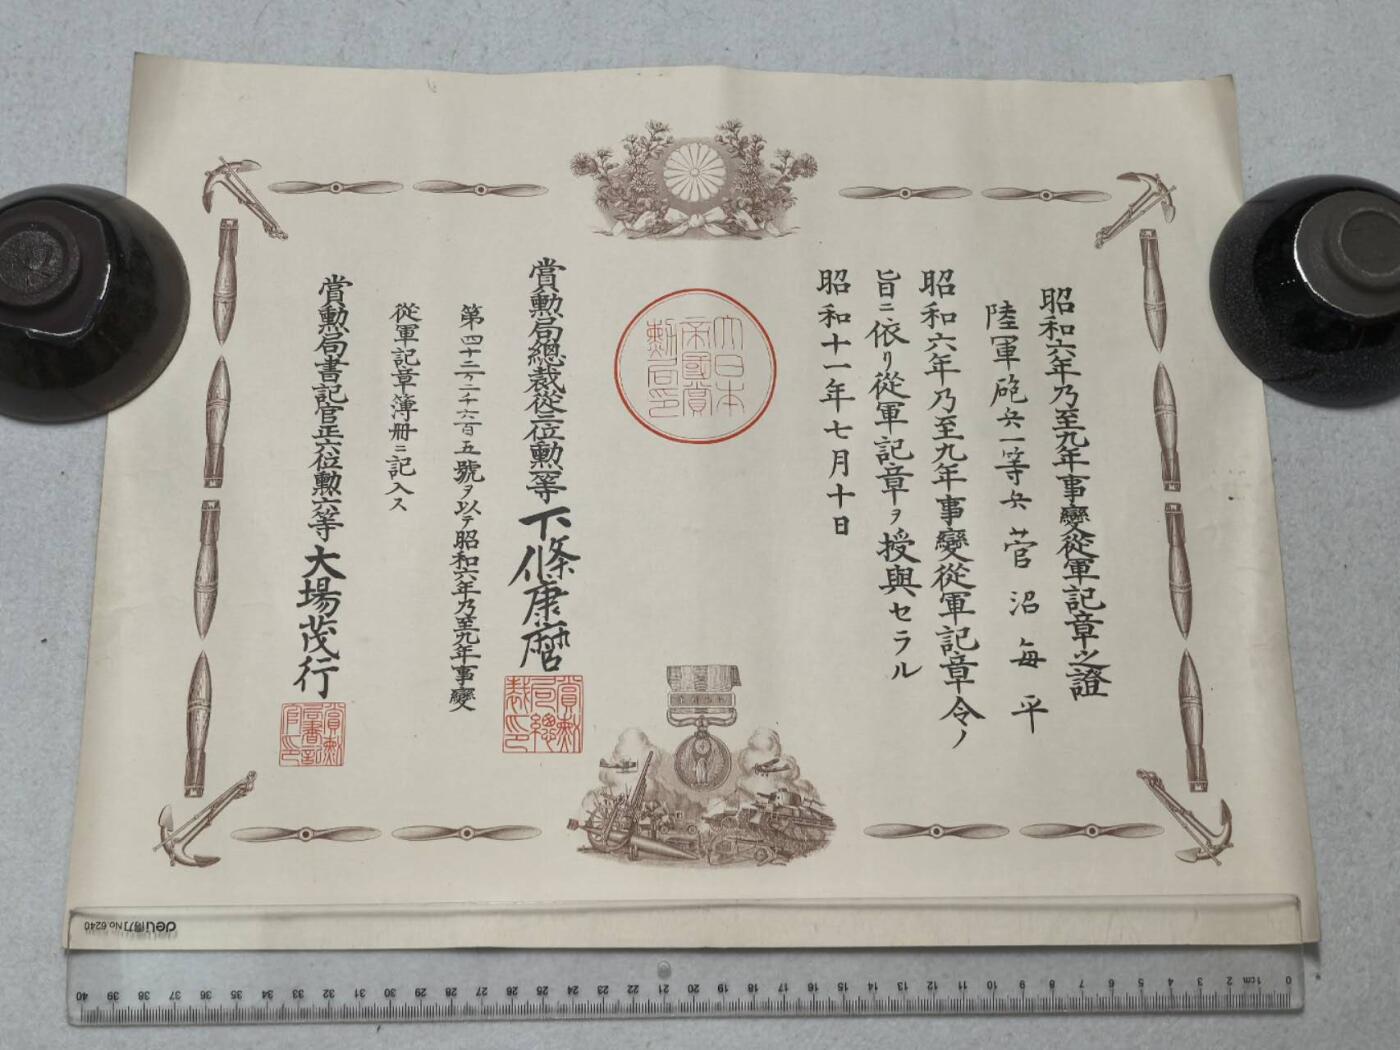 昭和六年乃至九年事變從軍記章之證
陸軍砲兵一等兵 菅沼每平
昭和六年乃至九年事變從軍記章令ノ
旨ニ依リ從軍記章ヲ授與セラル
昭和十一年七月十日
大日本
帝國賞
勲局印
賞勲局總裁從三位勲一等下條康麿
賞勲
局總
裁印
第四十二万二千六百五號ヲ以テ昭和六年乃至九年事變
從軍記章簿冊ニ記入ス
賞勲局書記官正六位勲六等大場茂行
賞勲
局書記
官印
deli得力 No.6240
0 1cm 2 3 4 5 6 7 8 9 10 11 12 13 14 15 16 17 18 19 20 21 22 23 24 25 26 27 28 29 30 31 32 33 34 35 36 37 38 39 40